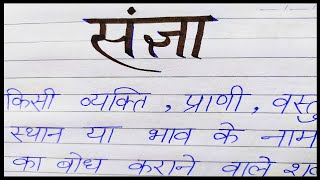 संज्ञा
किसी व्यक्ति, प्राणी, वस्तु
स्थान या भाव के नाम
का बोध कराने वाले